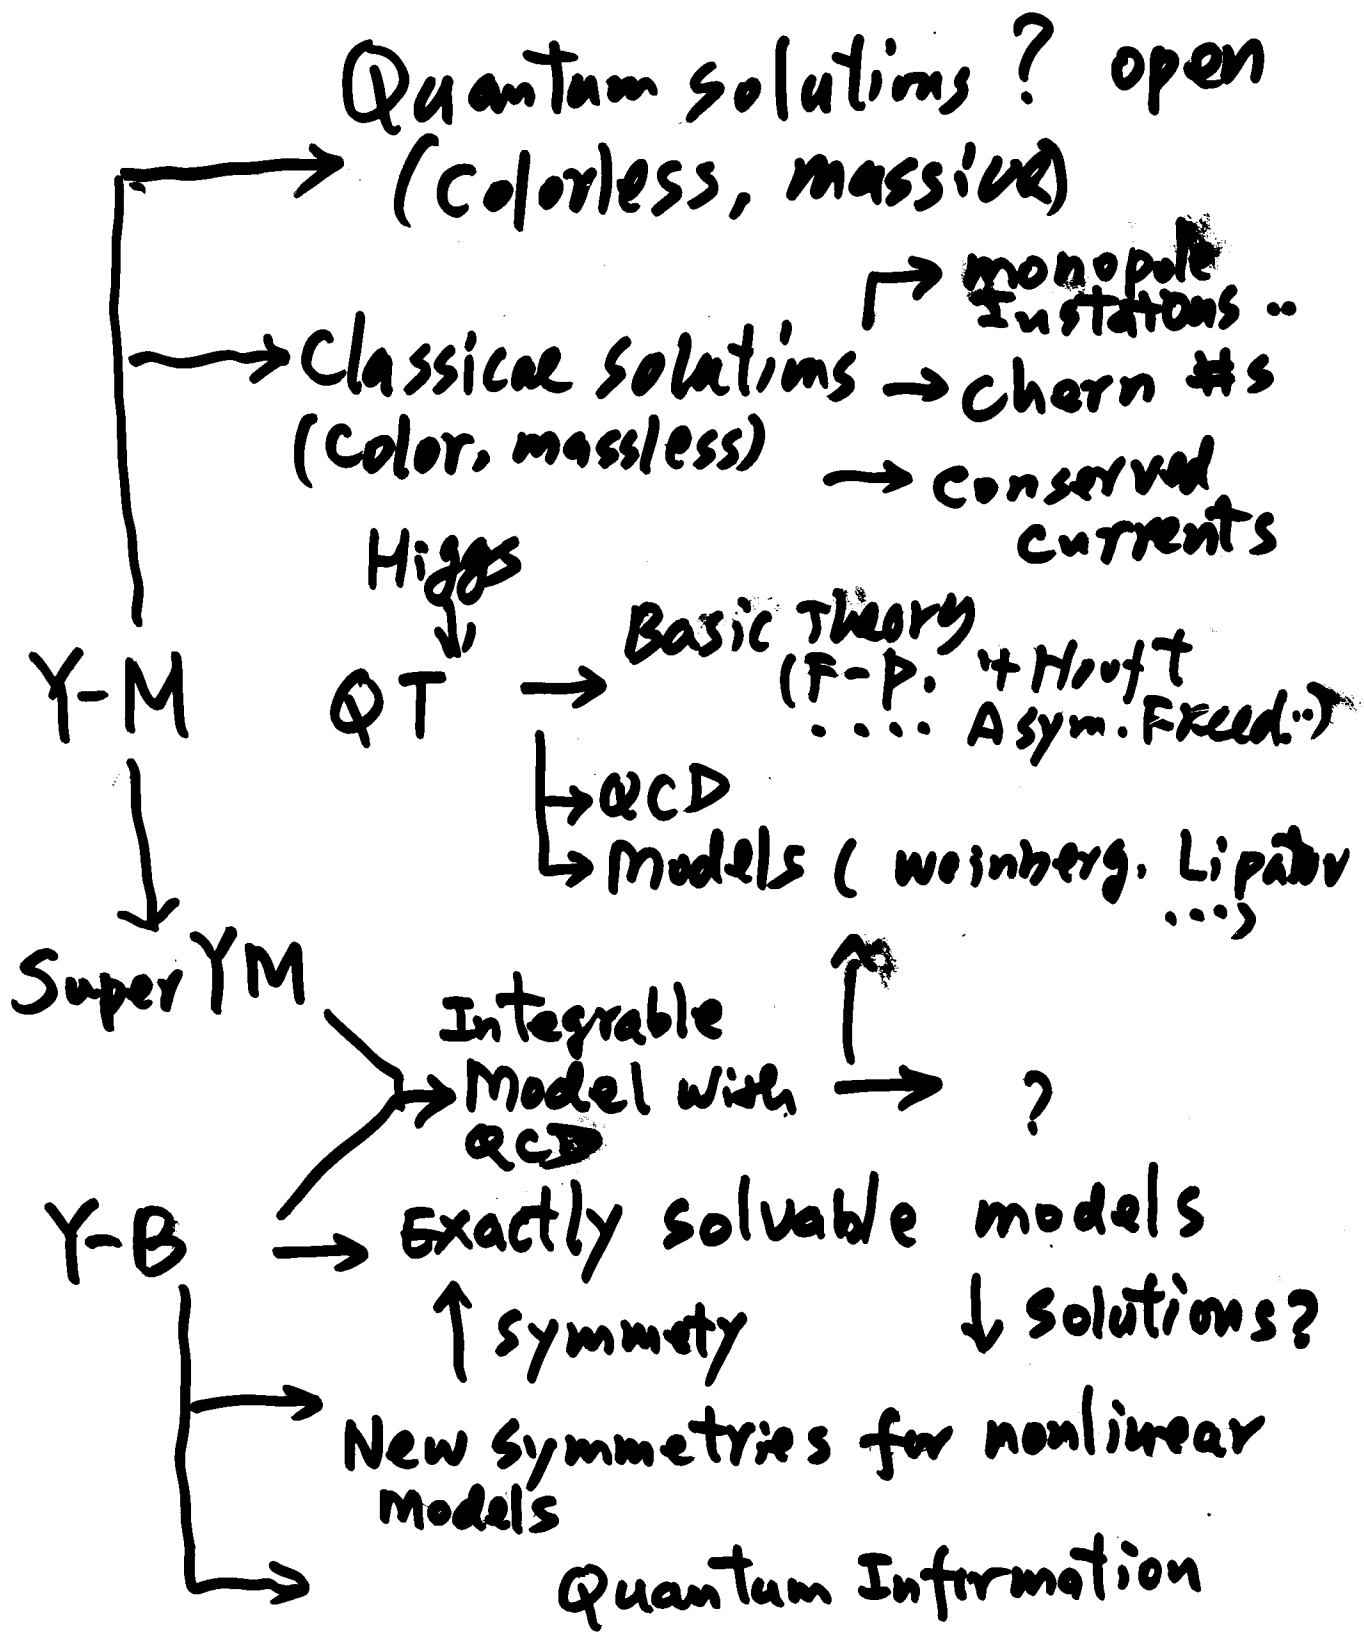 Quantum solutions ? open
(Colorless, massive)
monopole
Instatons ..
Classical solutions
Chern #s
(Color, massless)
conserved
currents
Higgs
Basic Theory
(F-P. 't Hooft
Y-M
QT
.... Asym. Freed..)
QCD
Models ( weinberg. Lipatov
...)
Super YM
Integrable
Model with
?
QCD
Y-B
Exactly solvable models
symmety
solutions?
New symmetries for nonlinear
Models
Quantum Information